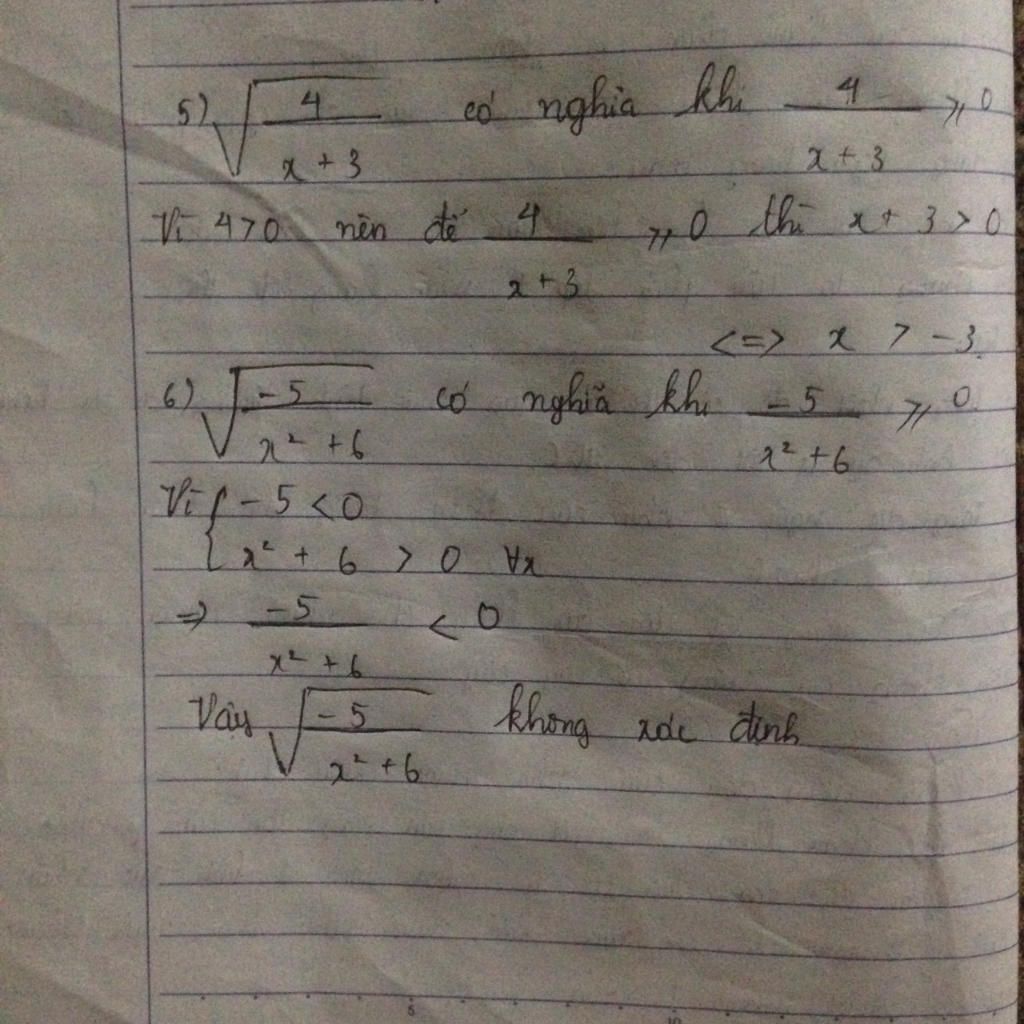 5) √(4/(x + 3)) có nghĩa khi 4/(x + 3) ≥ 0
Vì 4 > 0 nên để 4/(x + 3) ≥ 0 thì x + 3 > 0
<=> x > -3.
6) √(-5/(x² + 6)) có nghĩa khi -5/(x² + 6) ≥ 0
Vì { -5 < 0
x² + 6 > 0 ∀x
=> -5/(x² + 6) < 0
Vậy √(-5/(x² + 6)) không xác định
5 10